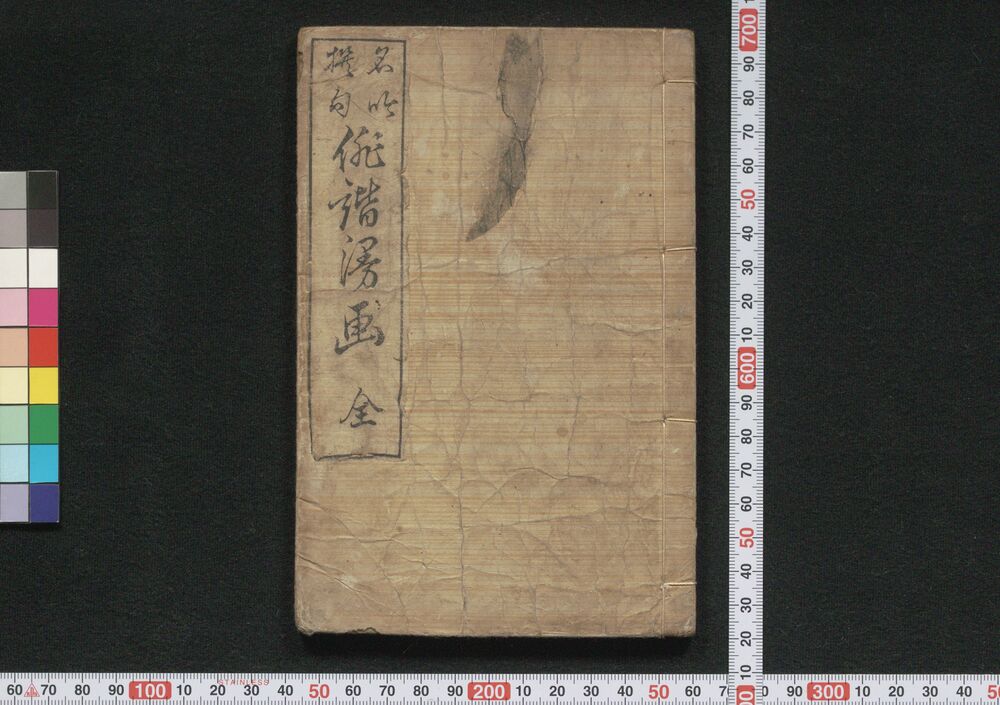 名吟
撰句
俳諧漫画 全
700
90
80
70
60
50
40
30
20
10
600
90
80
70
60
50
40
30
20
10
60 70 80 90 100 10 20 30 40 50 60 70 80 90 200 10 20 30 40 50 60 7 0 80 90 300 10 20 30 40 5
STAINLESS